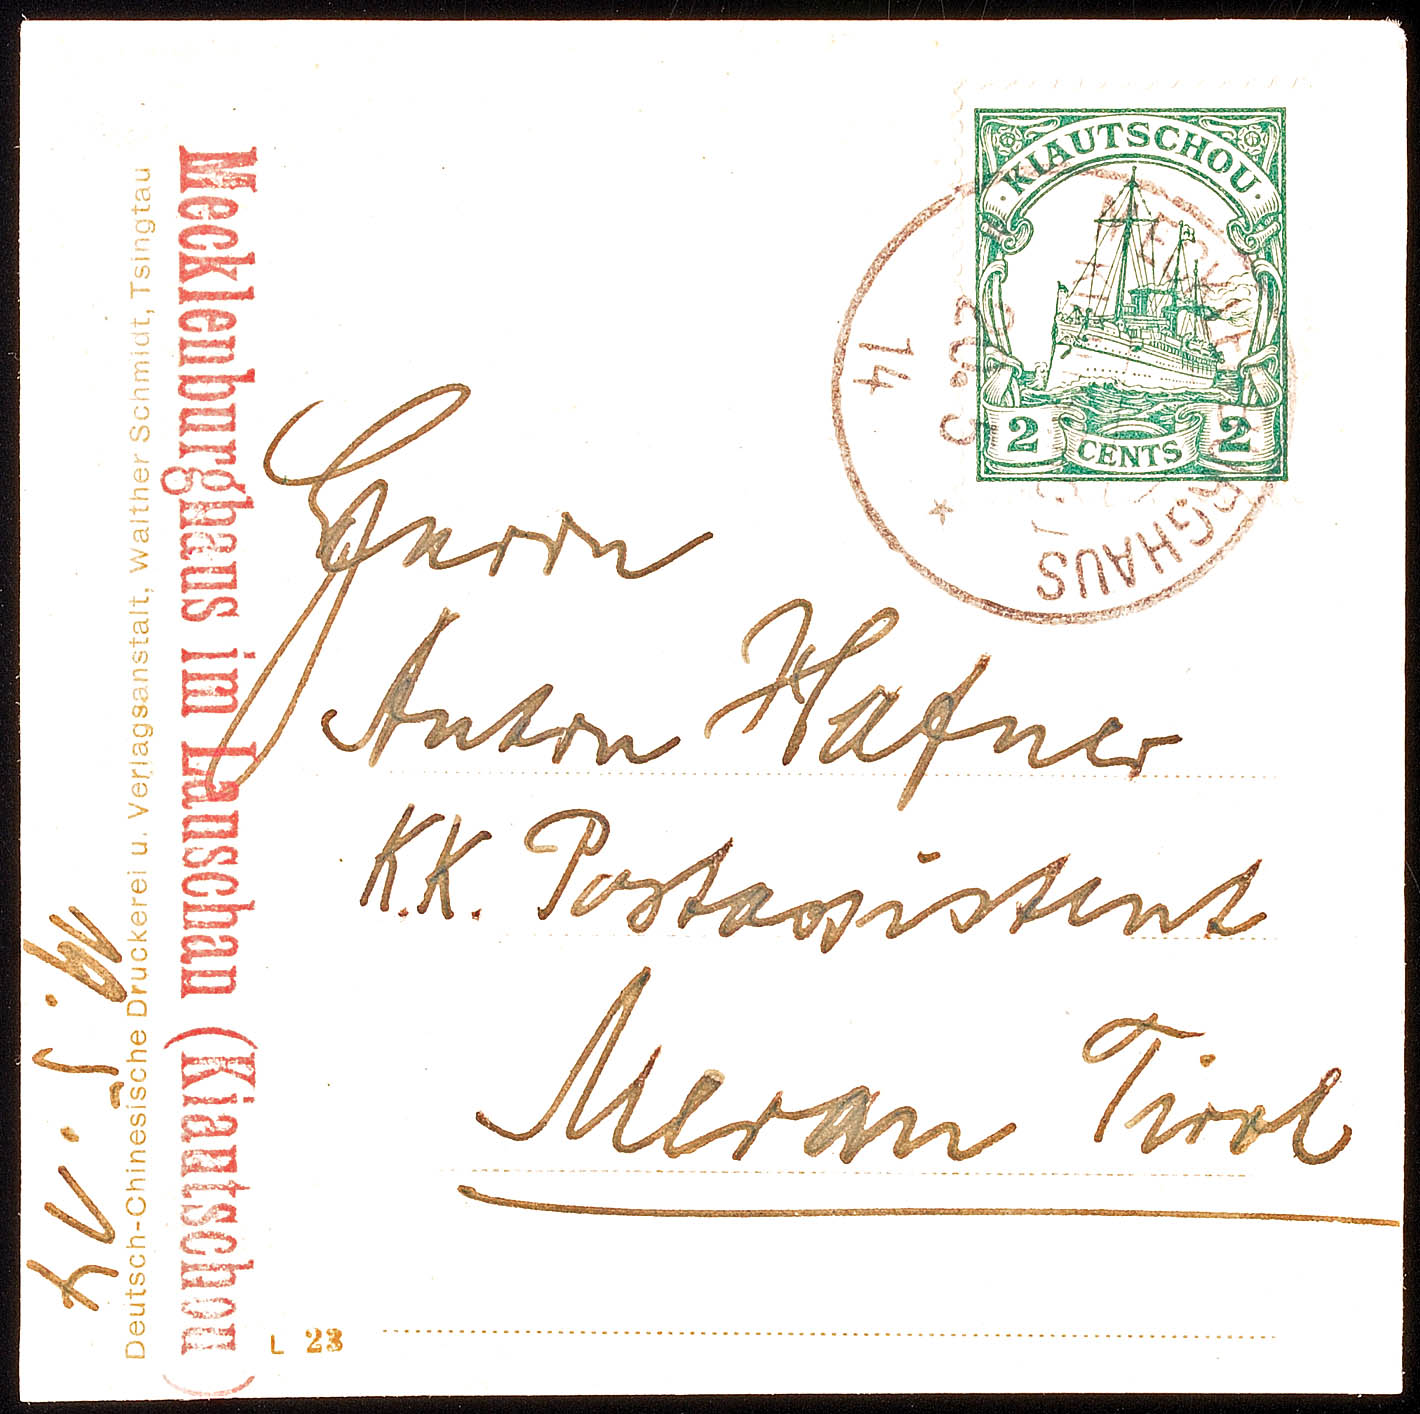 KIAUTSCHOU
2 CENTS 2
14
Herrn
Anton Hafner
K.K. Postassistent
Meran Tirol
Mecklenburghaus im Lauschan (Kiautschou)
Deutsch-Chinesische Druckerei u. Verlagsanstalt, Walther Schmidt, Tsingtau
L 23